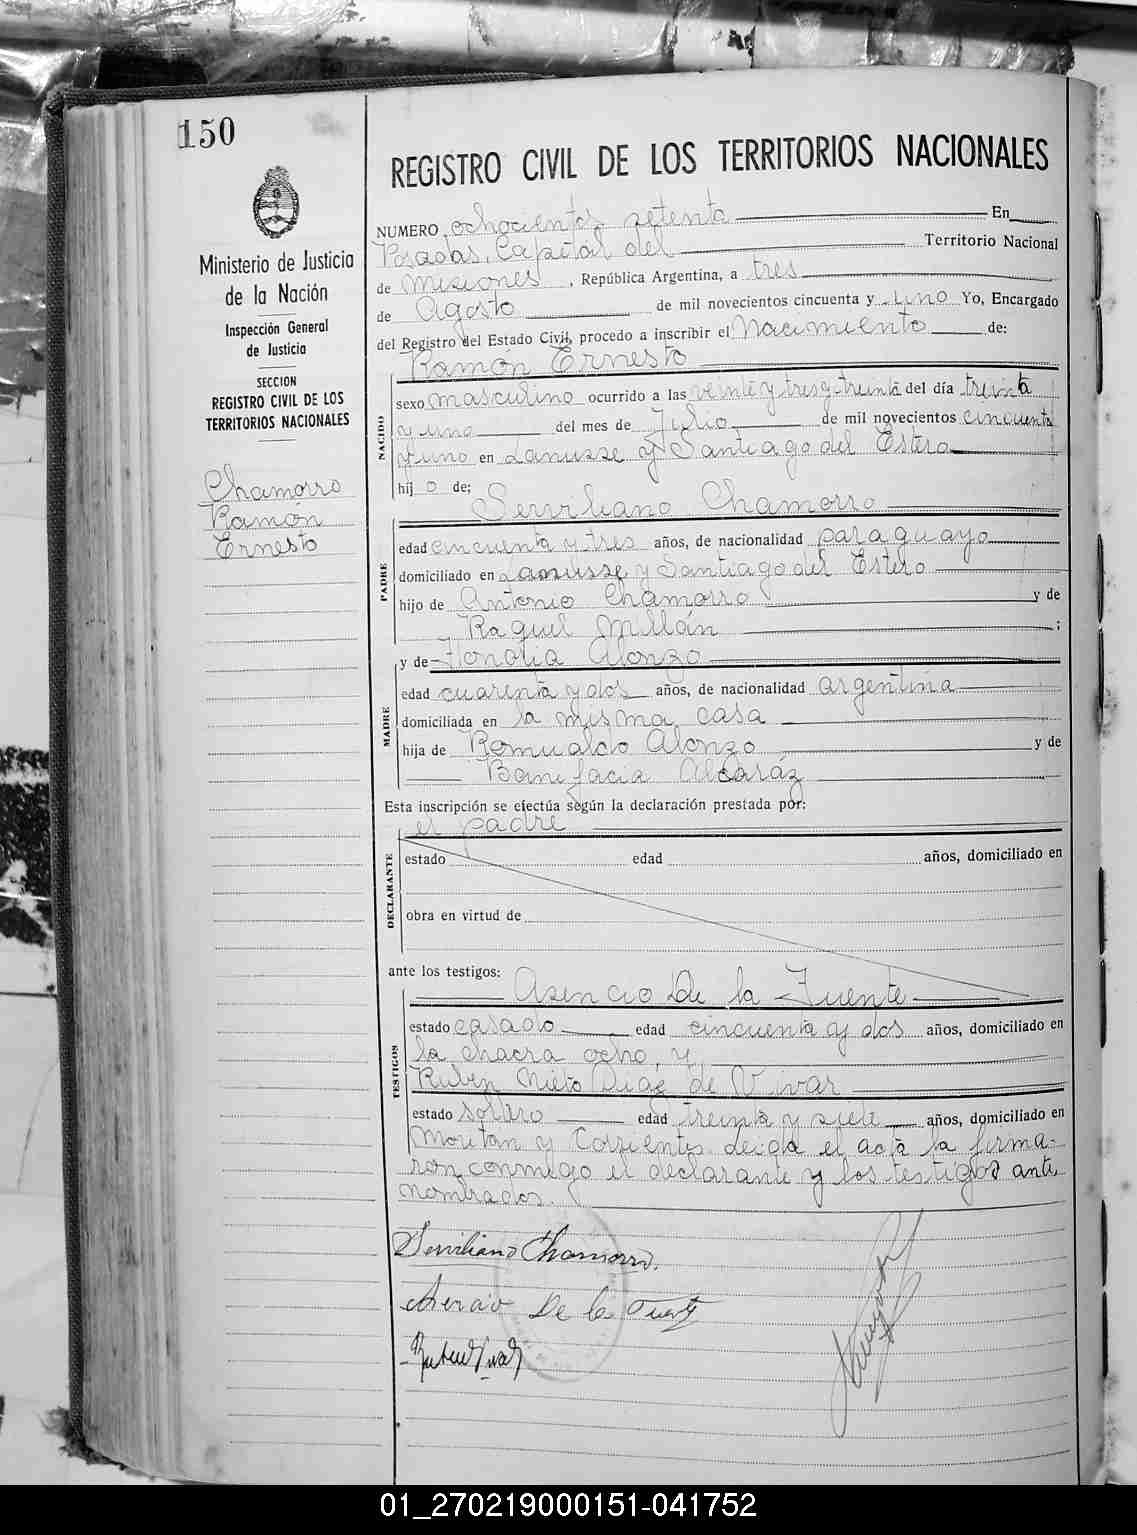 150
Ministerio de Justicia
de la Nación
Inspección General
de Justicia
SECCION
REGISTRO CIVIL DE LOS
TERRITORIOS NACIONALES
Chamorro
Ramón
Ernesto
REGISTRO CIVIL DE LOS TERRITORIOS NACIONALES
NUMERO ochocientos setenta En
Posadas, Capital del Territorio Nacional
de Misiones, República Argentina, a tres
de Agosto de mil novecientos cincuenta y uno Yo, Encargado
del Registro del Estado Civil, procedo a inscribir el Nacimiento de:
Ramón Ernesto
NACIDO
sexo masculino ocurrido a las veinte y tres y treinta del día treinta
y uno del mes de Julio de mil novecientos cincuenta
y uno en Lanusse y Santiago del Estero
hijo de;
Serviliano Chamorro
PADRE
edad cincuenta y tres años, de nacionalidad paraguayo
domiciliado en Lanusse y Santiago del Estero
hijo de Antonio Chamorro y de
Raquel Millán ;
y de Honoria Alonzo
MADRE
edad cuarenta y dos años, de nacionalidad argentina
domiciliada en la misma casa
hija de Romualdo Alonzo y de
Bonifacia Alcaráz
Esta inscripción se efectúa según la declaración prestada por:
el padre
DECLARANTE
estado edad años, domiciliado en
obra en virtud de
ante los testigos:
Asencio De la Fuente
TESTIGOS
estado casado edad cincuenta y dos años, domiciliado en
la chacra ocho, y
Ruben Nieto Diaz de Vivar
estado soltero edad treinta y siete años, domiciliado en
Moritan y Corrientes. Leida el acta la firma-
ron conmigo el declarante y los testigos ante
nombrados.
Serviliano Chamorro.
Asencio De la Fuente
01_270219000151-041752